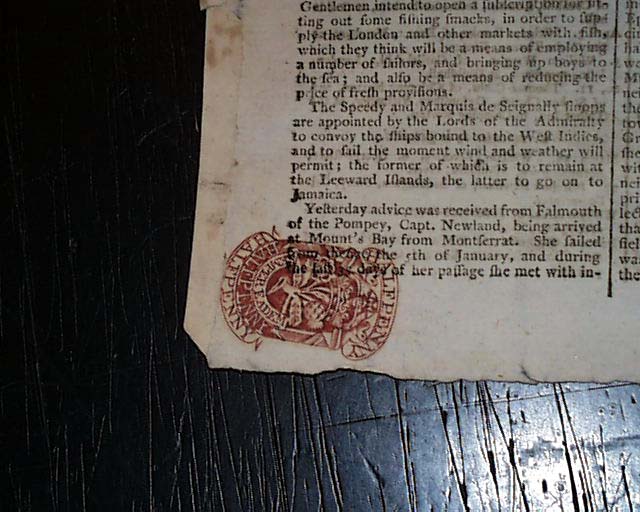 Gentlemen intend to open a ſubſcription for fit-
ting out ſome fiſhing ſmacks, in order to ſup-
ply the London and other markets with fiſh,
which they think will be a means of employing
a number of ſailors, and bringing up boys to
the ſea; and alſo be a means of reducing the
price of freſh proviſions.
The Speedy and Marquis de Seignally ſloops
are appointed by the Lords of the Admiralty
to convoy the ſhips bound to the Weſt Indies,
and to ſail the moment wind and weather will
permit; the former of which is to remain at
the Leeward Iſlands, the latter to go on to
Jamaica.
Yeſterday advice was received from Falmouth
of the Pompey, Capt. Newland, being arrived
at Mount's Bay from Montſerrat. She ſailed
from thence the 5th of January, and during
the laſt days of her paſſage ſhe met with in-
HALFPENNY